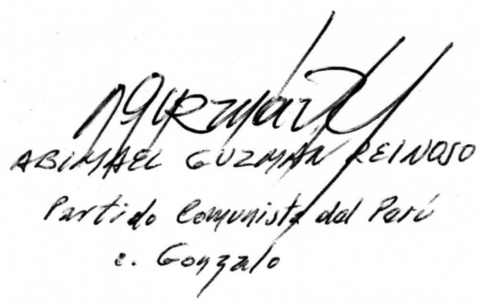 AGuzmán
ABIMAEL GUZMÁN REINOSO
Partido Comunista del Perú
c. Gonzalo